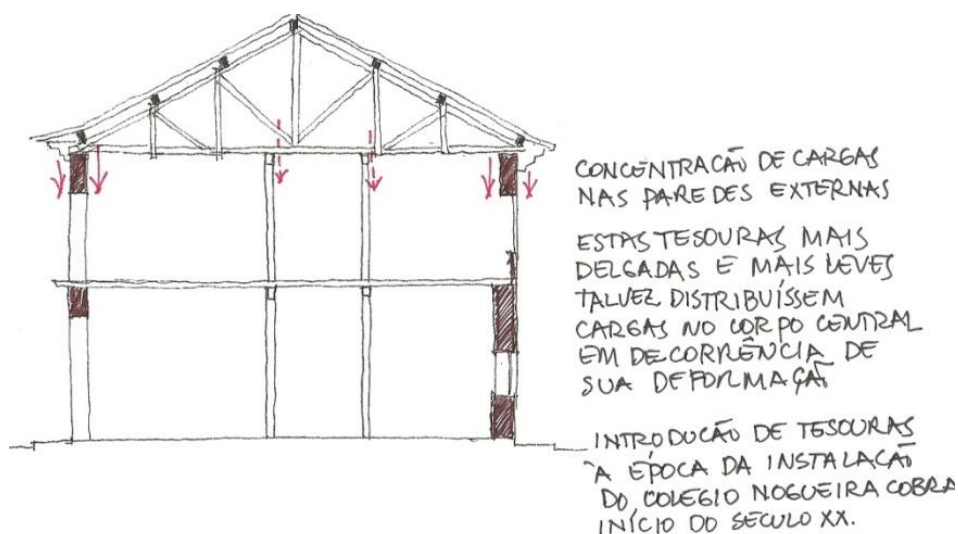 CONCENTRACÃO DE CARGAS
NAS PAREDES EXTERNAS
ESTAS TESOURAS MAIS
DELGADAS E MAIS LEVES
TALVEZ DISTRIBUÍSSEM
CARGAS NO CORPO CENTRAL
EM DECORRÊNCIA DE
SUA DEFORMAÇÃ
INTRODUCÃO DE TESOURAS
À EPOCA DA INSTALAÇÃO
DO COLEGIO NOGUEIRA COBRA
INÍCIO DO SECULO XX.